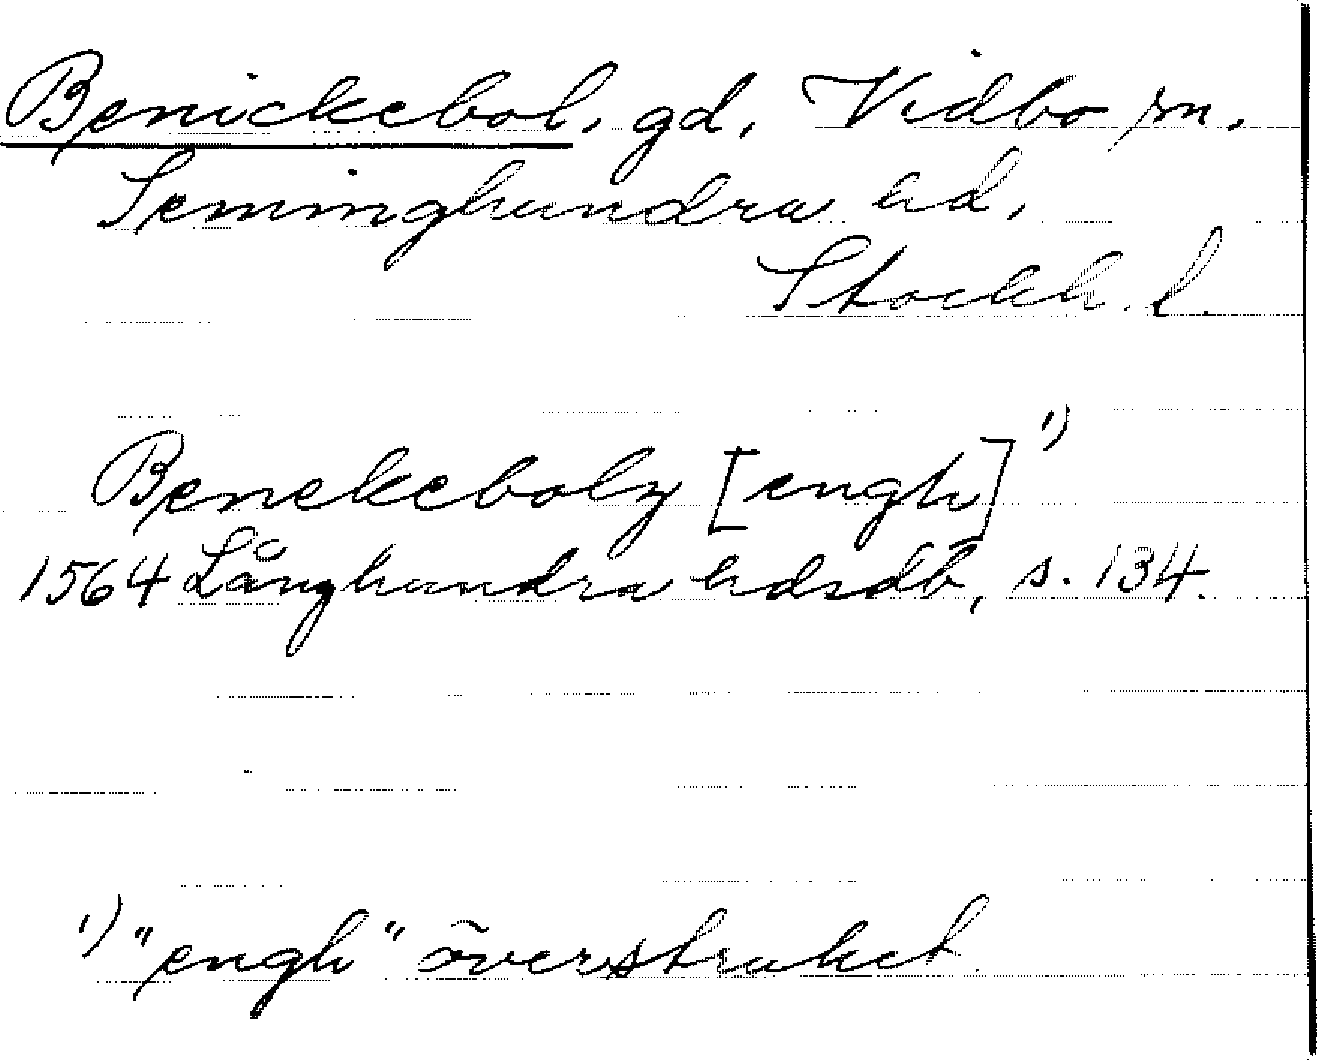 Benickebol, gd, Vidbo sn,
Seminghundra hd,
Stockh. l.
Benekeboly [engh] 1)
1564 Långhundra hdsdb, s. 134.
1) "engh" överstruket